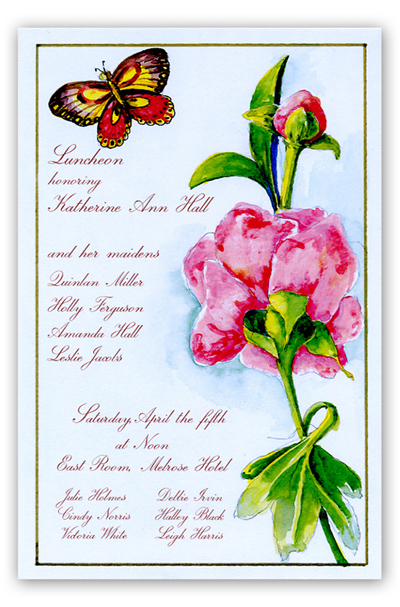 Luncheon
honoring
Katherine Ann Hall
and her maidens
Quinlan Miller
Holly Ferguson
Amanda Hall
Leslie Jacobs
Saturday, April the fifth
at Noon
East Room, Melrose Hotel
Julie Holmes
Cindy Norris
Victoria White
Debbie Irvin
Halley Black
Leigh Harris